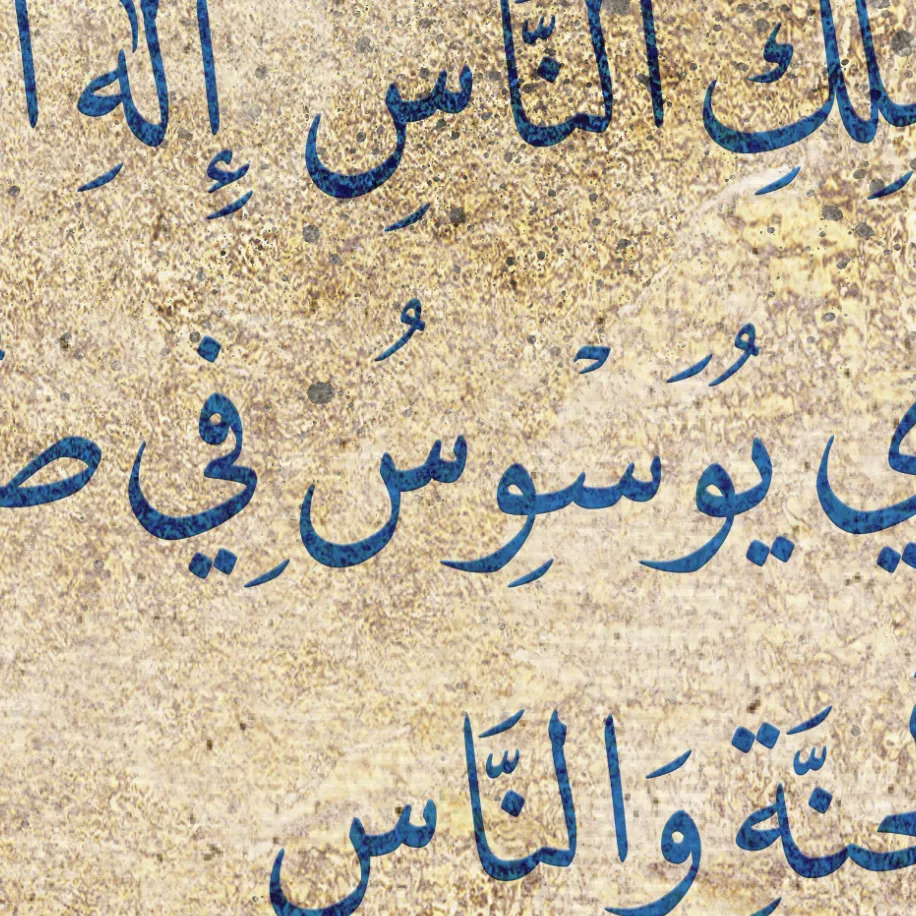 لِكِ النَّاسِ إِلٰهِ ا
ي يُوَسْوِسُ فِي صـ
جنَّةِ وَالنَّاس